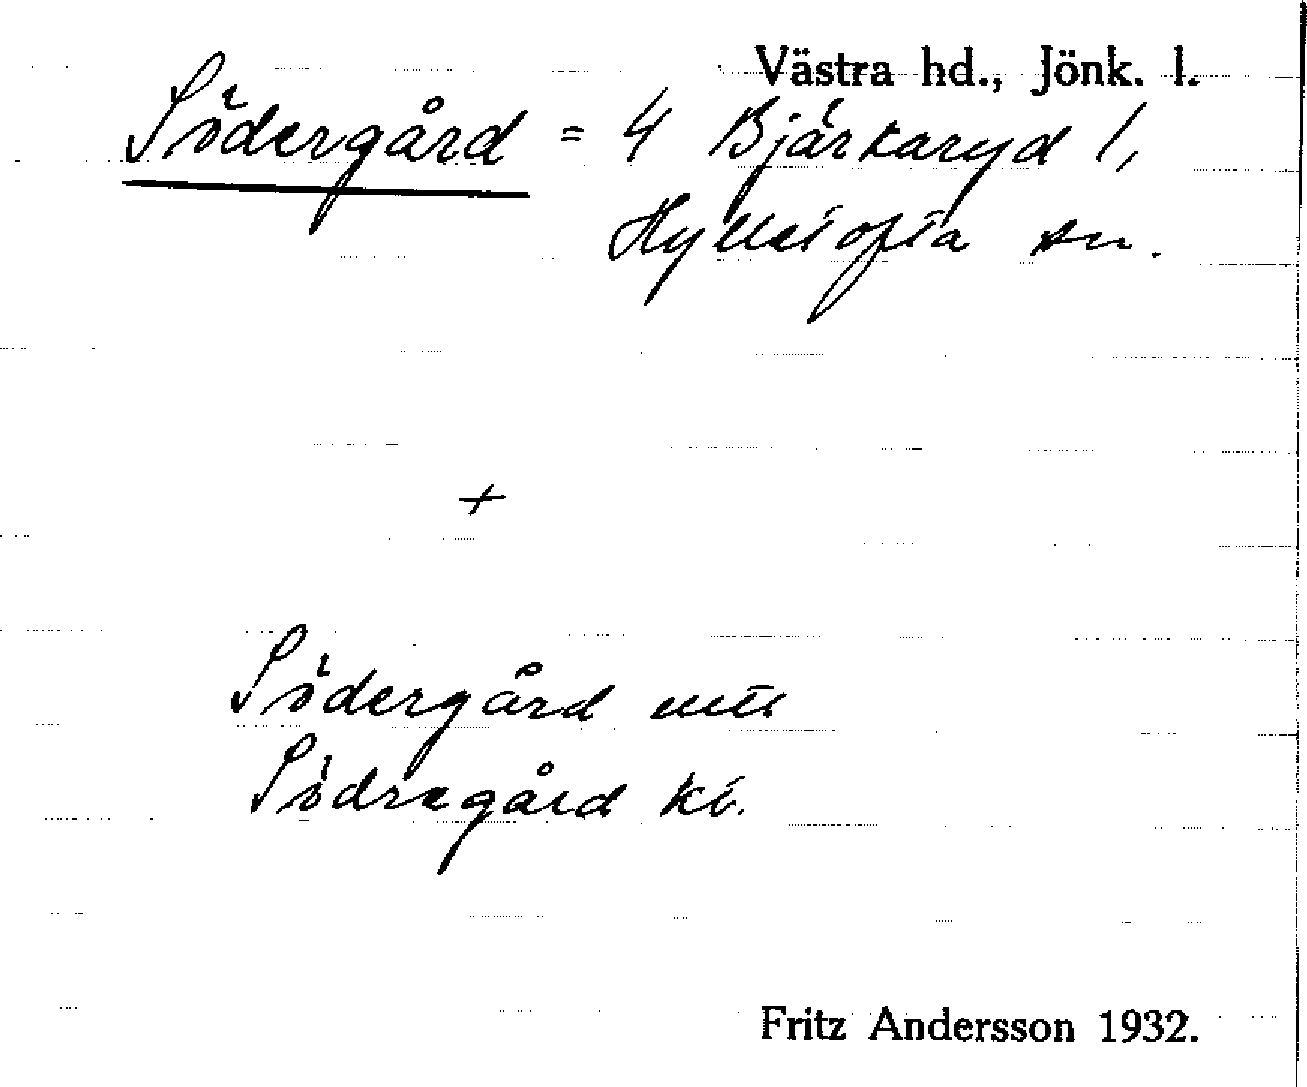 Västra hd., Jönk. l.
Södergård = 4 Bjärkaryd 1,
Hylletofta sn.
+
Södergård
Södregård kb.
Fritz Andersson 1932.